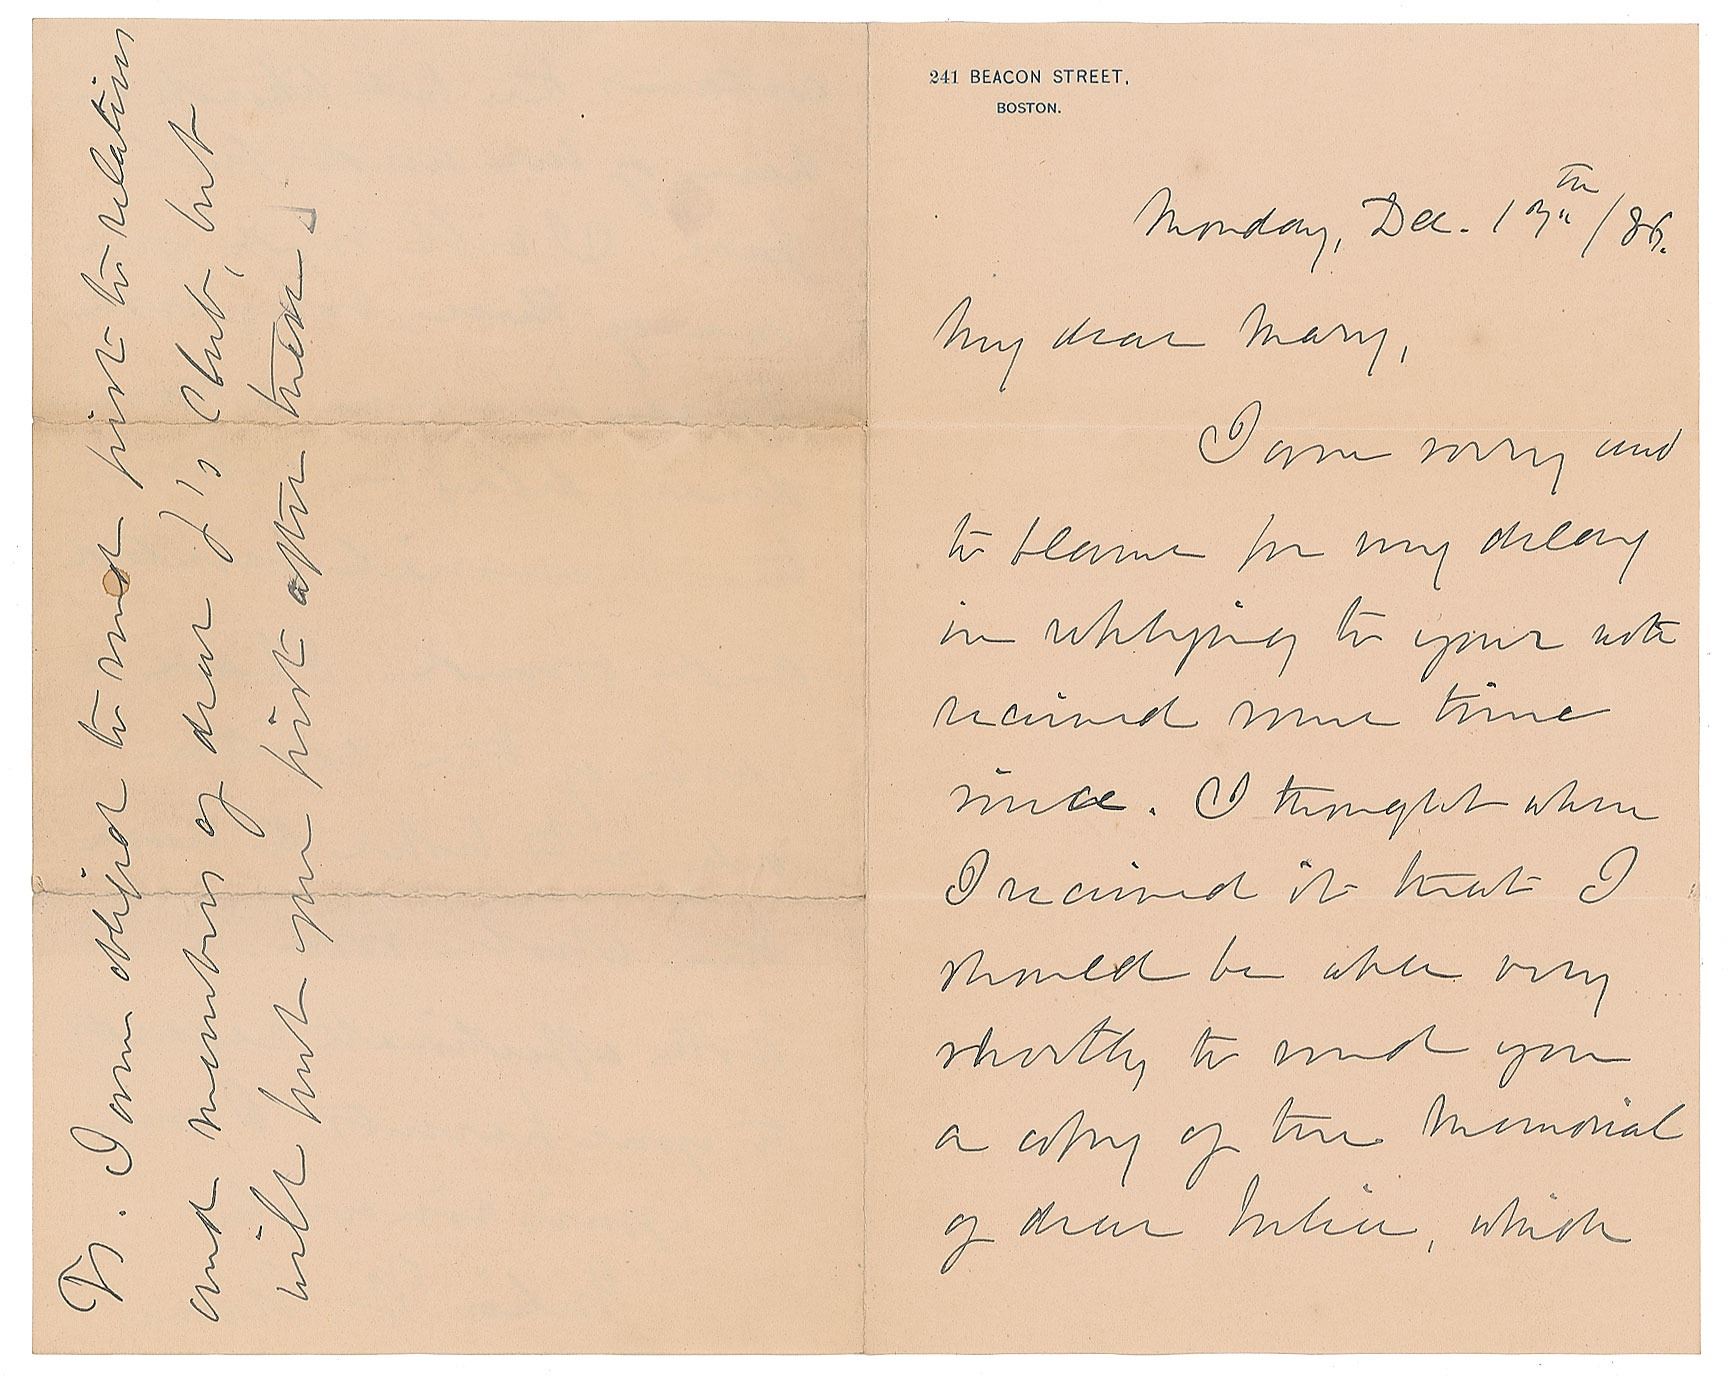 241 BEACON STREET,
BOSTON.
Monday, Dec. 13th /86.
My dear Mary,
I am sorry and
to blame for my delay
in replying to your note
received some time
since. I thought when
I received it that I
should be able very
shortly to send you
a copy of the Memorial
of dear Julia, which
Ps. I am obliged to send first to relations
and members of dear J's Club, but
will put you first after them.